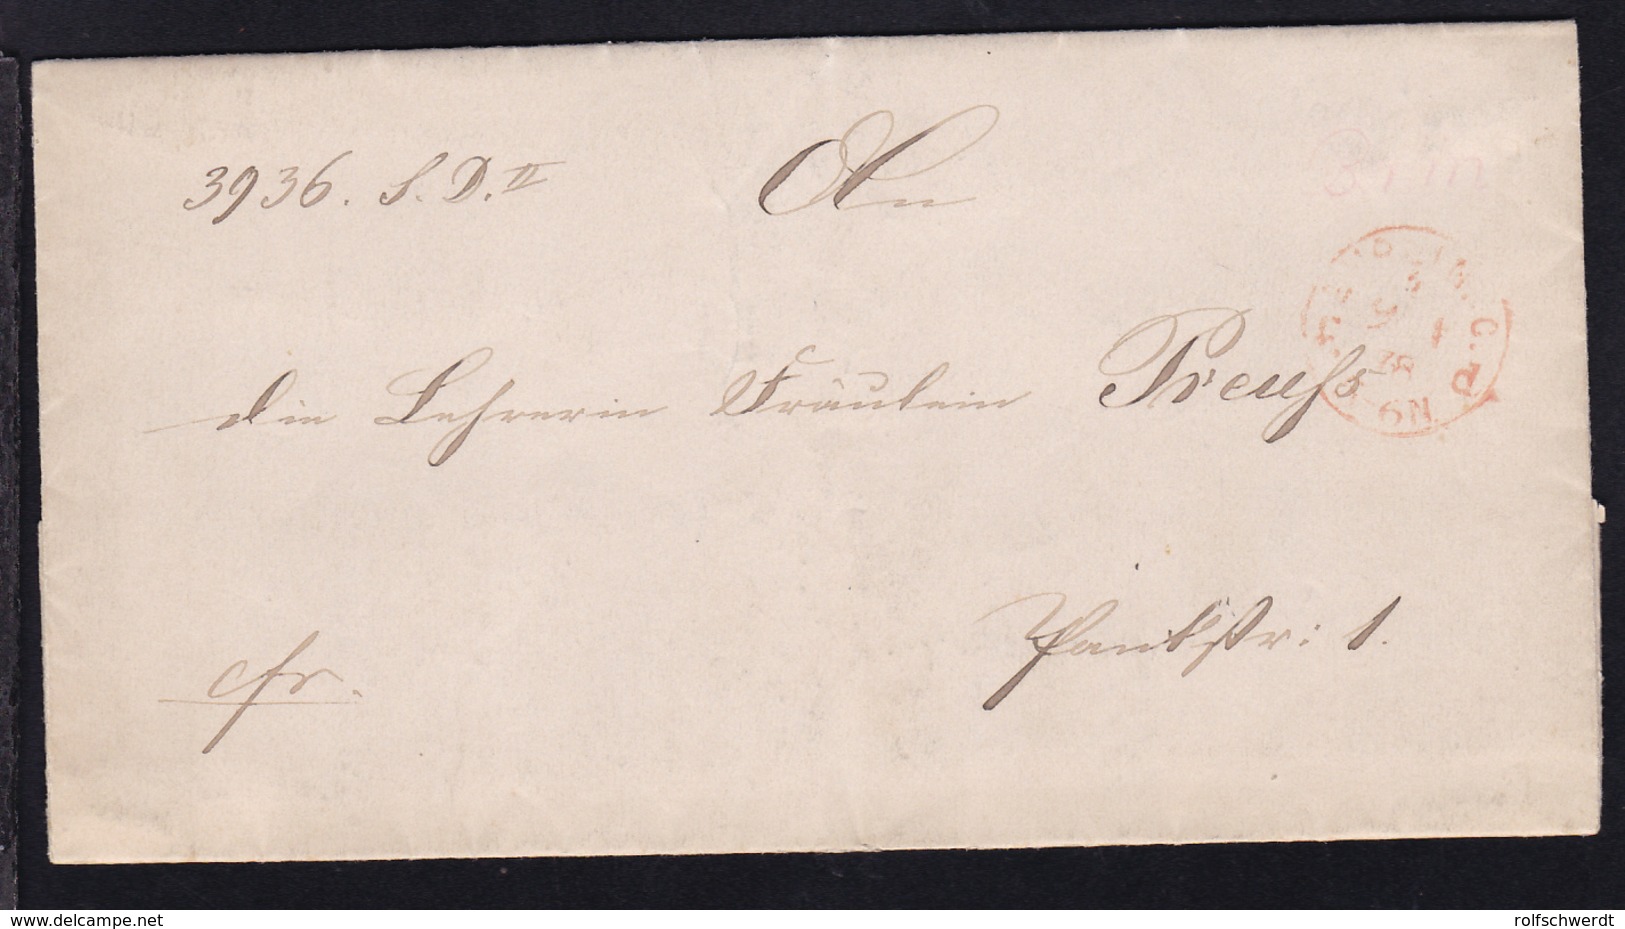 3936. S. D. II
An
die Lehrerin Fräulein Preuß
Pankstr: 1.
fr.
www.delcampe.net
rolfschwerdt